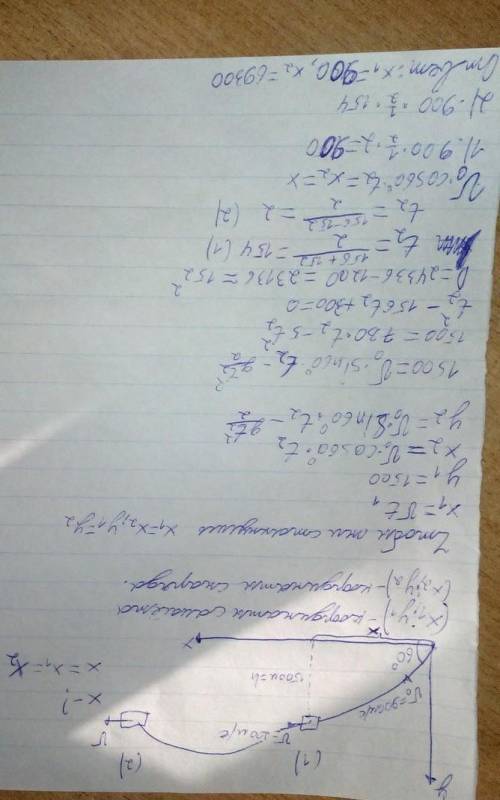 y
(1)
(2)
υ=20м/с
υ
υ₀=900м/с
1500м=h
60°
x₁
x
x - ?
x = x₁ = x₂
(x₁; y₁) - координаты самолёта
(x₂; y₂) - координаты снаряда.
Чтобы они столкнулись x₁=x₂; y₁=y₂
x₁ = υt₁
y₁ = 1500
x₂ = υ₀·cos60°·t₂
y₂ = υ₀·sin60°·t₂ - gt₂²/2
1500 = υ₀·sin60°·t₂ - gt₂²/2
1500 = 780·t₂ - 5t₂²
t₂² - 156t₂ + 300 = 0
D = 24336 - 1200 = 23136 ≈ 152²
t₂ = (156+152)/2 = 154 (1)
t₂ = (156-152)/2 = 2 (2)
υ₀·cos60°·t₂ = x₂ = x
1). 900·½·2 = 900
2). 900·½·154
Ответ: x₁ = 900, x₂ = 69300